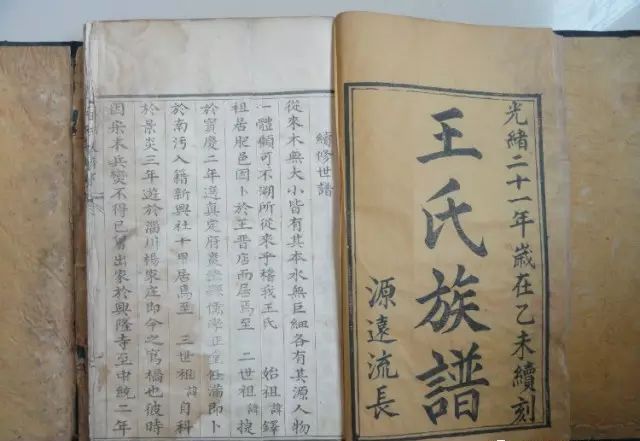 光緒二十一年歲在乙未續刻
王氏族譜
源遠流長
續修世譜
從來木無大小皆有其本水無巨細各有其源人物
一體顧可不溯所從來乎稽我王氏 始祖諱鐸
祖居肥邑因卜於王晋店而居焉至 二世祖諱㨗
於寶慶二年選真定府儒學正堂任滿即卜
於南汚入籍新興社十甲居焉至 三世祖諱自科
於景炎三年遊於淄川楊家庄即今之窎橋也彼時
因宋末兵變不得已窎出家於興隆寺至中統二年